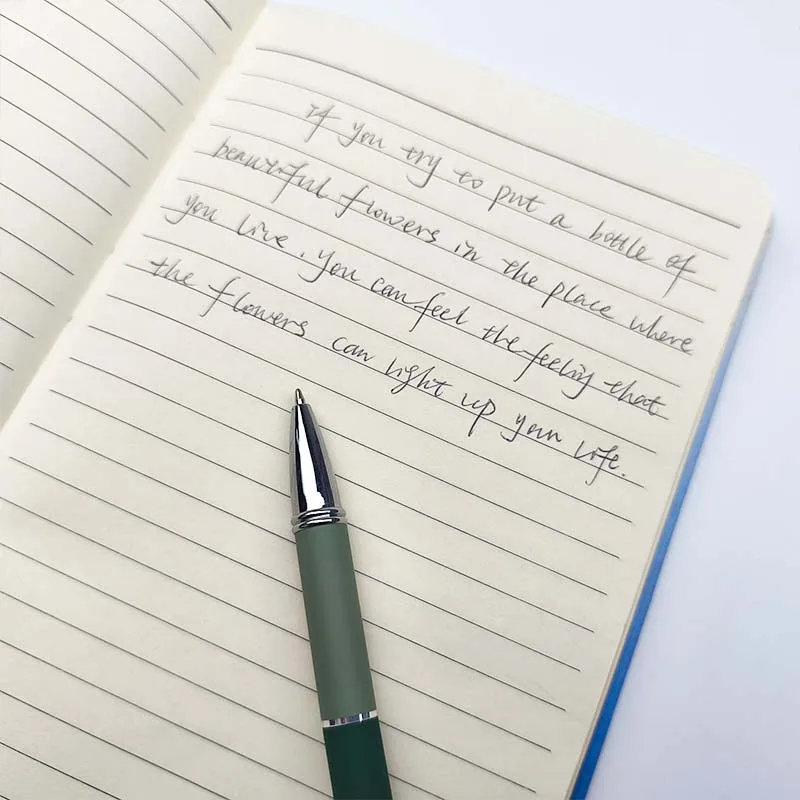 if you try to put a bottle of
beautiful flowers in the place where
you live. you can feel the feeling that
the flowers can light up your life.